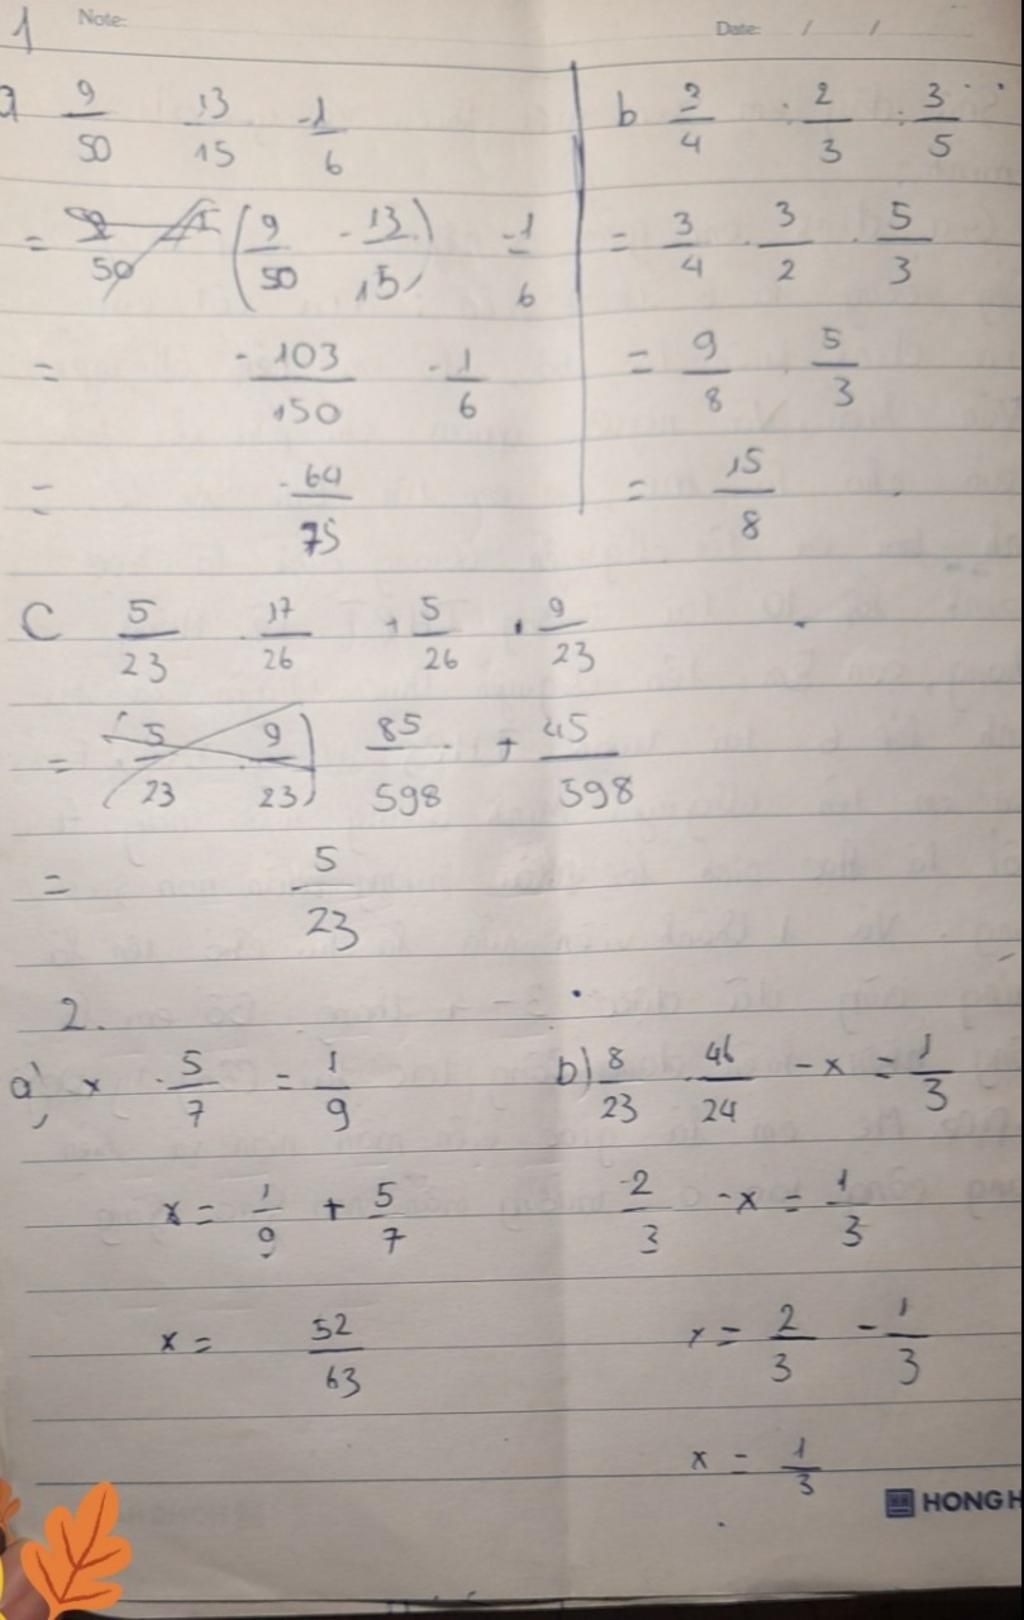 1 Note: Date: / /
a 9/50 - 13/15 - 1/6
= (9/50 - 13/15) - 1/6
= -103/150 - 1/6
= -64/75
b 3/4 : 2/3 : 3/5
= 3/4 . 3/2 . 5/3
= 9/8 . 5/3
= 15/8
C 5/23 . 17/26 + 5/26 . 9/23
= 85/598 + 45/598
= 5/23
2.
a) x - 5/7 = 1/9
x = 1/9 + 5/7
x = 52/63
b) 8/23 . 46/24 - x = 1/3
2/3 - x = 1/3
x = 2/3 - 1/3
x = 1/3
HONG H